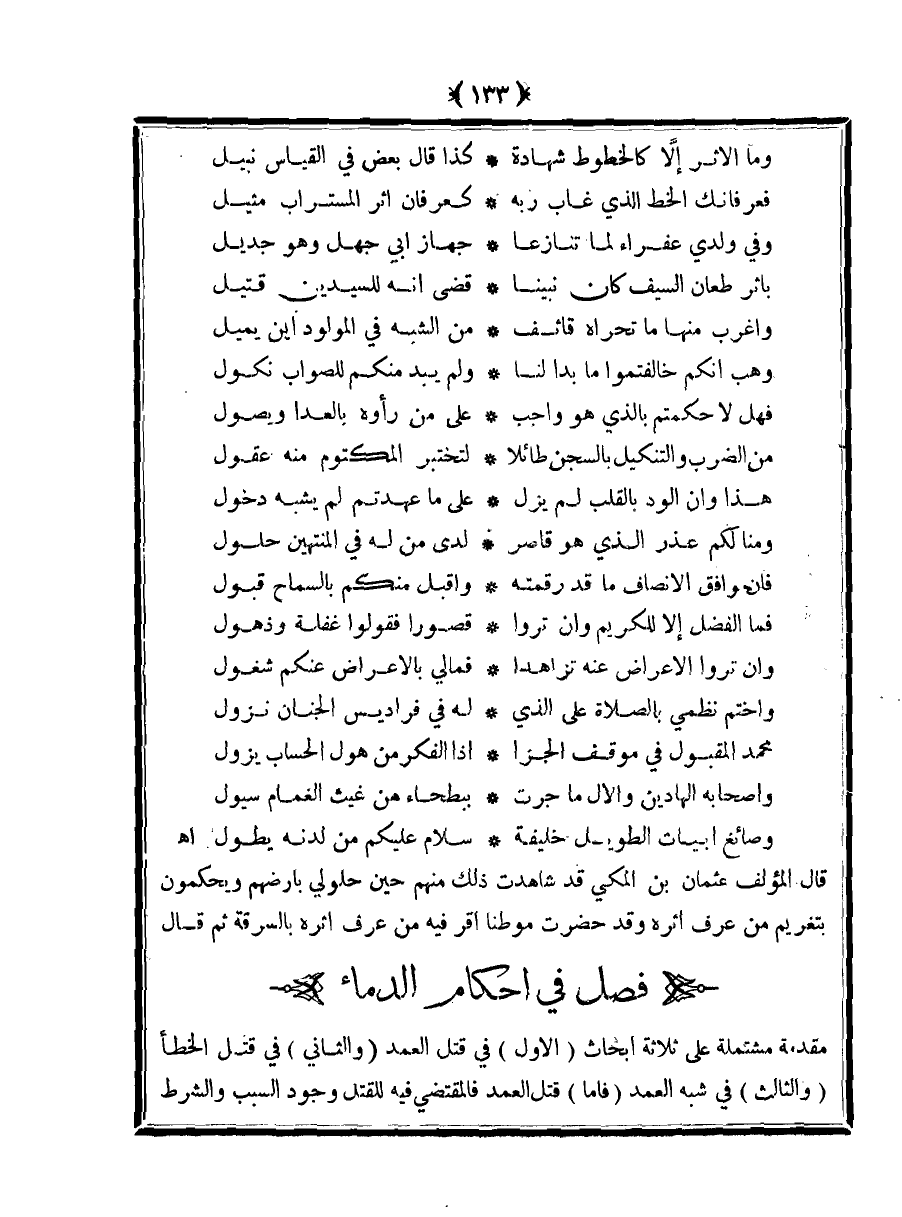 ﴿ ١٣٣ ﴾
وما الاثر إلَّا كالخطوط شهادة * كذا قال بعض في القياس نبيل
فعرفانك الخط الذي غاب ربه * كعرفان اثر المستراب مثيل
وفي ولدي عفراء لما تنازعا * جهاز ابي جهل وهو جديل
باثر طعان السيف كان نبينا * قضى انه للسيدين قتيل
واغرب منها ما تحراه قائف * من الشبه في المولود أين يميل
وهب انكم خالفتموا ما بدا لنا * ولم يبد منكم للصواب نكول
فهل لا حكمتم بالذي هو واجب * على من رأوه بالعدا ويصول
من الضرب والتنكيل بالسجن طائلا * لتختبر المكتوم منه عقول
هذا وان الود بالقلب لم يزل * على ما عهدتم لم يشبه دخول
ومنا لكم عذر الذي هو قاصر * لدى من له في المنتهين حلول
فان وافق الانصاف ما قد رقمته * واقبل منكم بالسماح قبول
فما الفضل إلا للكريم وان تروا * قصورا فقولوا غفلة وذهول
وان تروا الاعراض عنه تزاهدا * فمالي بالاعراض عنكم شغول
واختم نظمي بالصلاة على الذي * له في فراديس الجنان نزول
محمد المقبول في موقف الجزا * اذا الفكر من هول الحساب يزول
واصحابه الهادين والال ما جرت * ببطحاء من غيث الغمام سيول
وصائغ ابيات الطويل خليفة * سلام عليكم من لدنه يطول اه
قال المؤلف عثمان بن المكي قد شاهدت ذلك منهم حين حلولي بارضهم ويحكمون
بتغريم من عرف أثره وقد حضرت موطنا اقر فيه من عرف اثره بالسرقة ثم قال
فصل في احكام الدماء
مقدمة مشتملة على ثلاثة أبحاث ( الاول ) في قتل العمد ( والثاني ) في قتل الخطأ
( والثالث ) في شبه العمد ( فاما ) قتل العمد فالمقتضي فيه للقتل وجود السبب والشرط